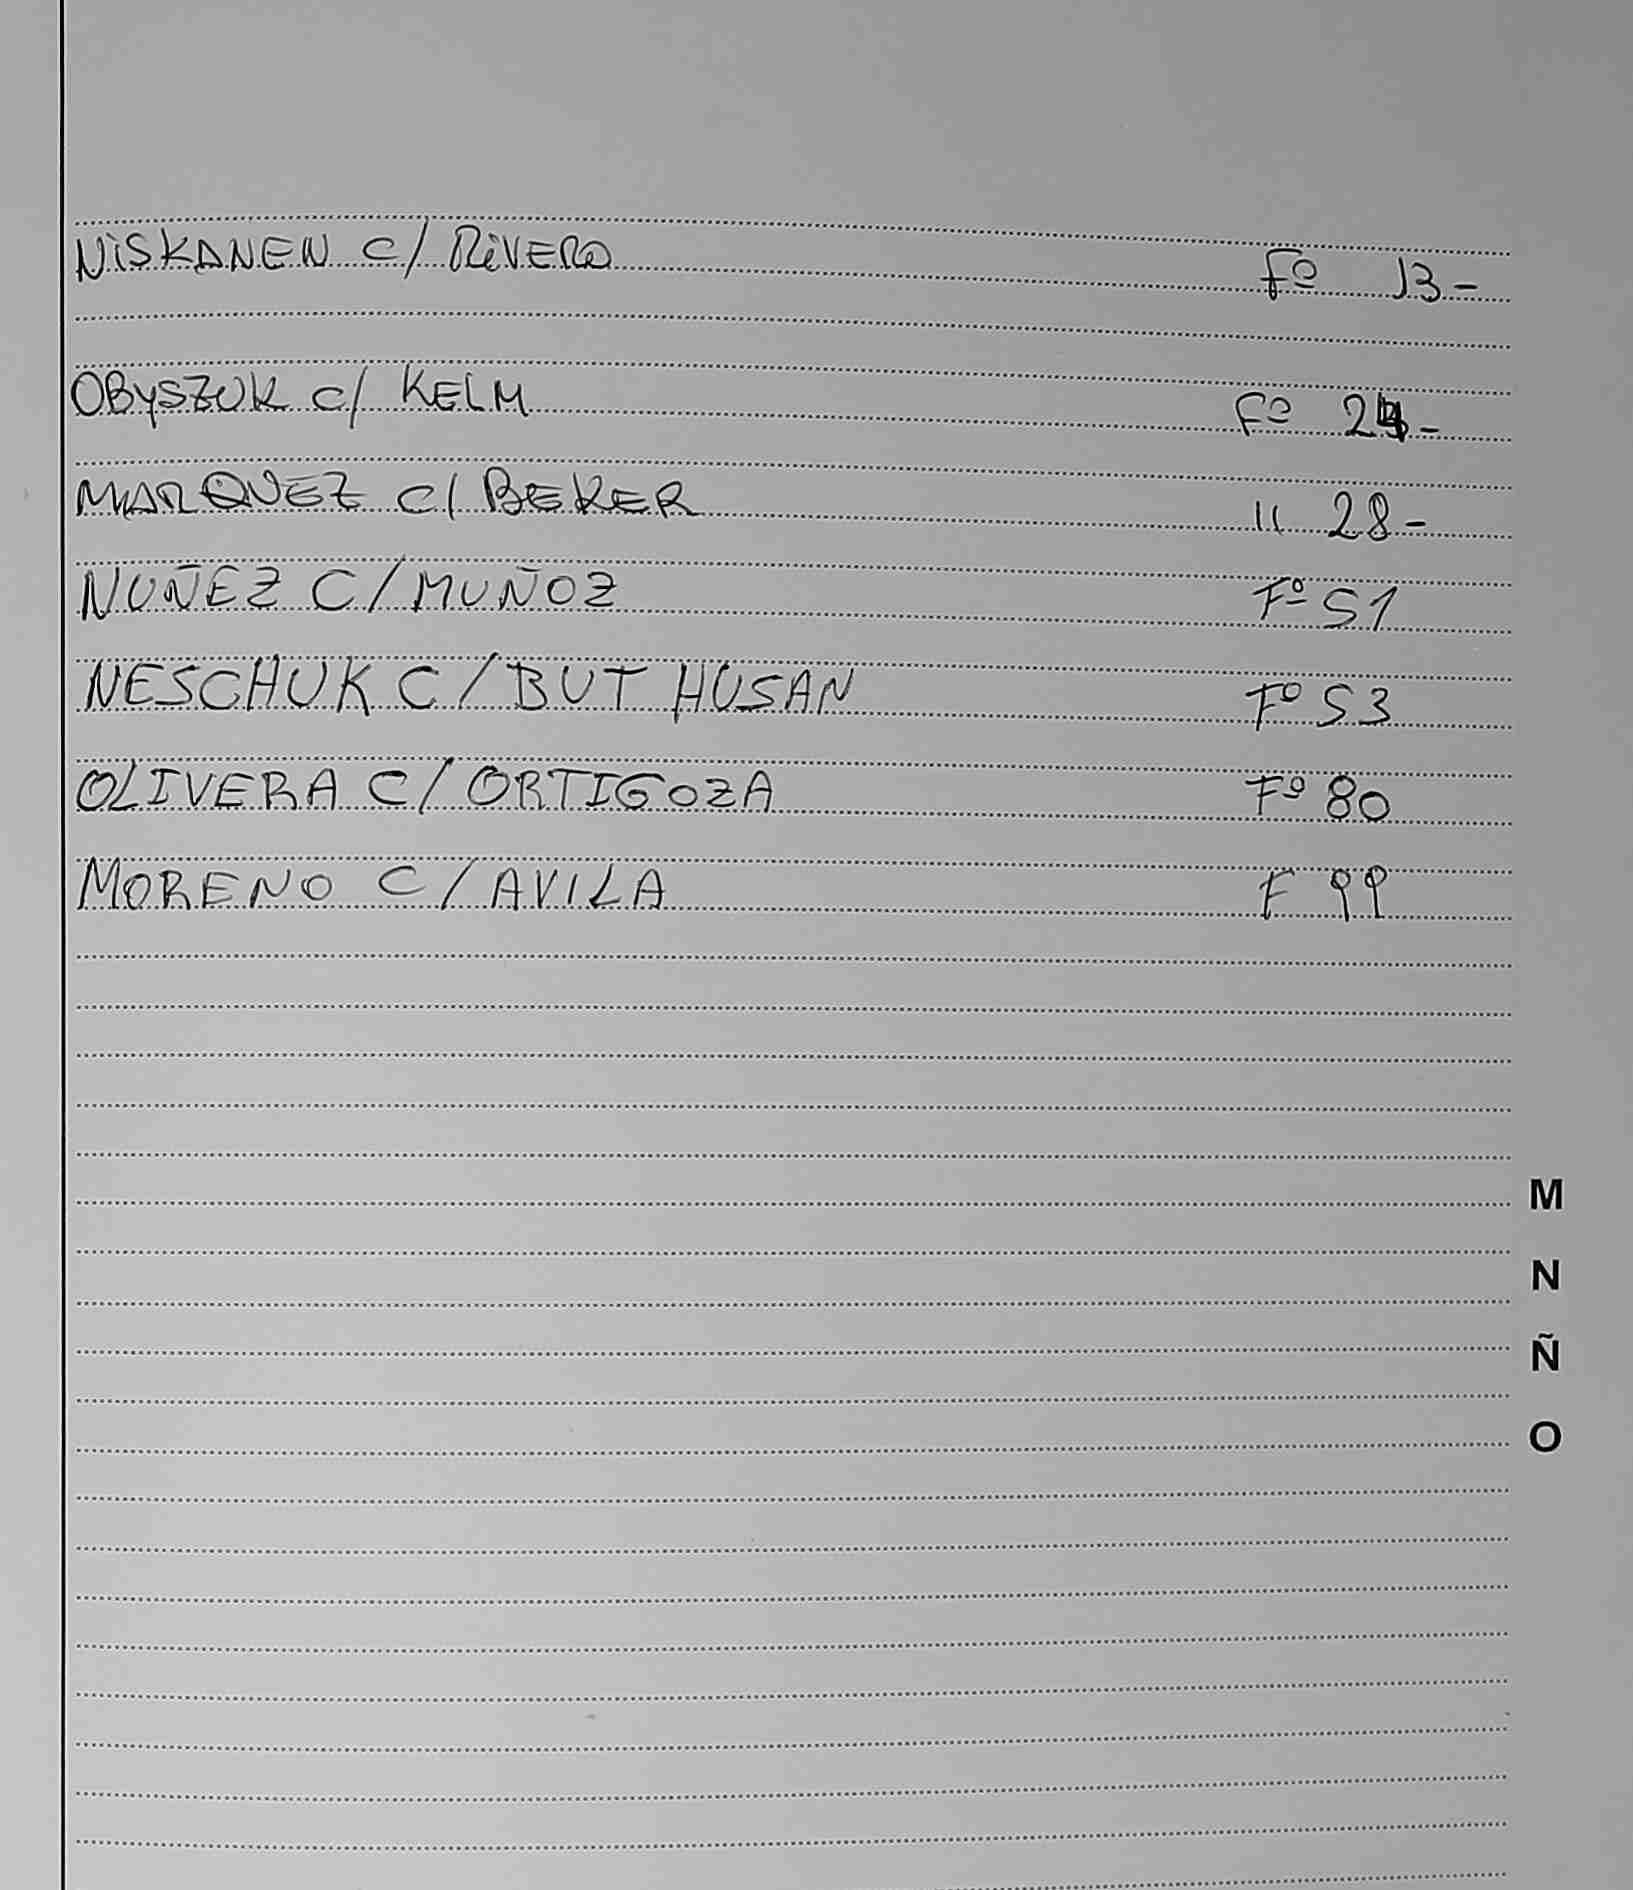 NiSKANEN c/ RiVERO Fº 13-
OBySZUK c/ KELM Fº 24-
MARQUEZ c/ BEKER " 28-
NUÑEZ C/MUÑOZ Fº 51
NESCHUK C/BUT HUSAN Fº 53
OLIVERA C/ORTIGOZA Fº 80
MORENO C/AVILA F 99
M
N
Ñ
O